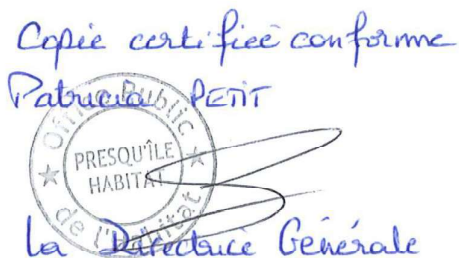 Copie certifiée conforme
Patricia PETIT
Office Public
PRESQU'ÎLE
HABITAT
de l'Habitat
La Directrice Générale